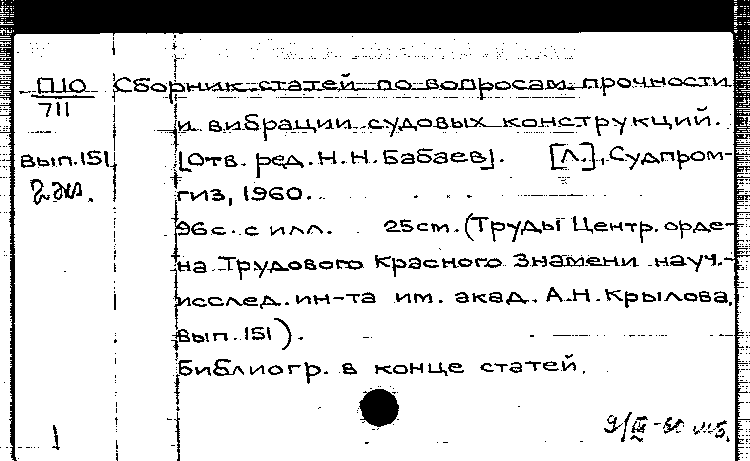 П10 Сборник статей по вопросам прочности
711
и вибрации судовых конструкций.
вып.151 [Отв. ред. Н.Н. Бабаев]. [Л.], Судпром-
2 экз. гиз, 1960.
96с. с илл. 25см. (Труды Центр. орде-
на Трудового Красного Знамени науч.-
исслед. ин-та им. акад. А.Н. Крылова,
вып. 151).
Библиогр. в конце статей.
1 9/III-60